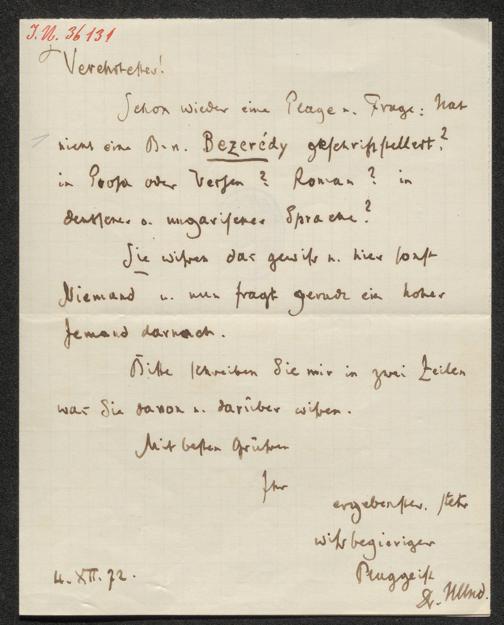 I.N. 36131
Verehrtester!
Schon wieder eine Plage u. Frage: Hat
nicht eine B-n. Bezerédy geschriftstellert?
in Prosa oder Versen? Roman? in
deutscher o. ungarischer Sprache?
Sie wissen das gewiss u. hier sonst
Niemand u. nun fragt gerade ein hoher
Jemand darnach.
Bitte schreiben Sie mir in zwei Zeilen
was Sie davon u. darüber wissen.
Mit besten Grüssen
Ihr
ergebenster, stets
wissbegieriger
Plaggeist
4. XII. 72.